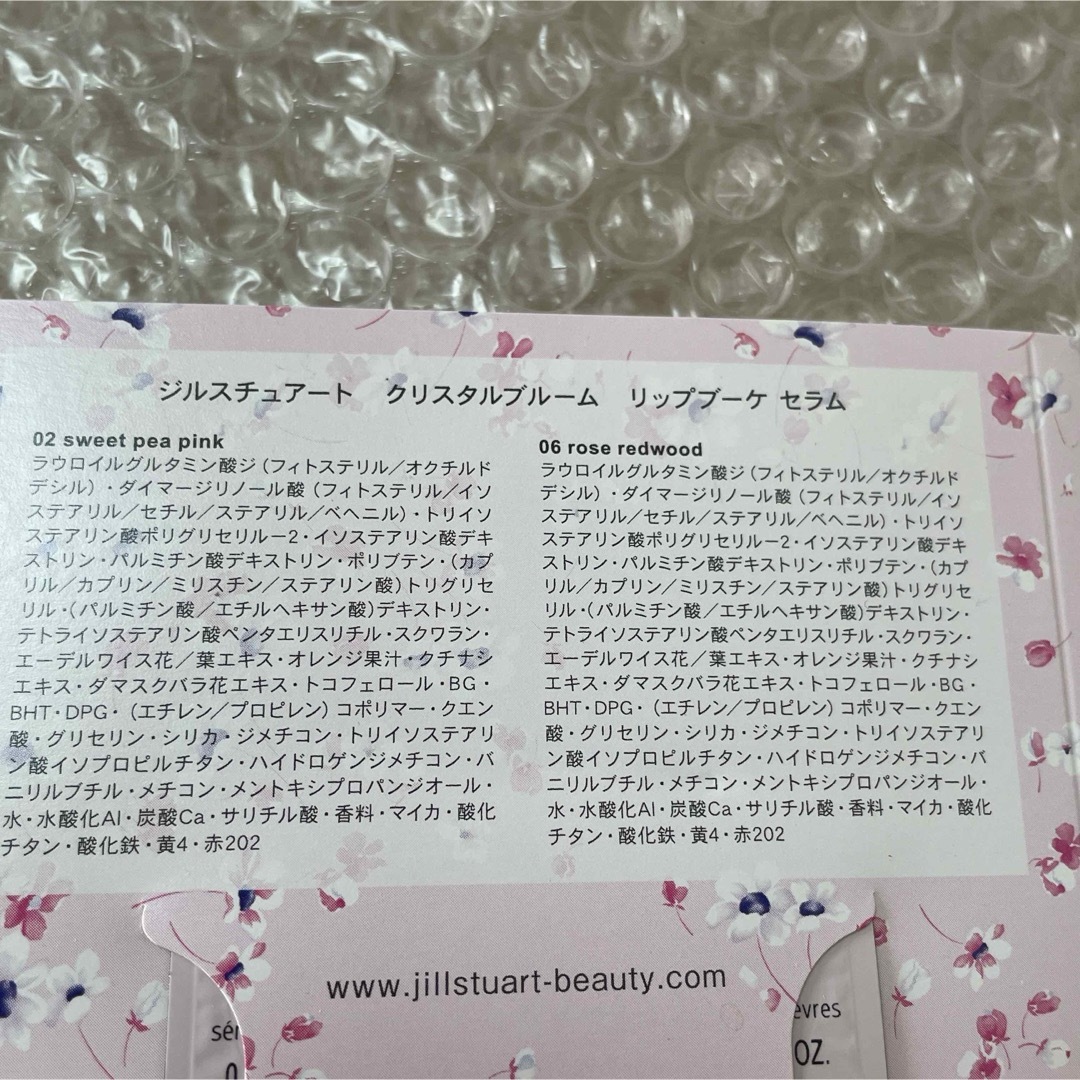 ジルスチュアート クリスタルブルーム リップブーケ セラム
02 sweet pea pink
ラウロイルグルタミン酸ジ(フィトステリル/オクチルド
デシル)・ダイマージリノール酸(フィトステリル/イソ
ステアリル/セチル/ステアリル/ベヘニル)・トリイソ
ステアリン酸ポリグリセリル−2・イソステアリン酸デキ
ストリン・パルミチン酸デキストリン・ポリブテン・(カプ
リル/カプリン/ミリスチン/ステアリン酸)トリグリセ
リル・(パルミチン酸/エチルヘキサン酸)デキストリン・
テトライソステアリン酸ペンタエリスリチル・スクワラン・
エーデルワイス花/葉エキス・オレンジ果汁・クチナシ
エキス・ダマスクバラ花エキス・トコフェロール・BG・
BHT・DPG・(エチレン/プロピレン)コポリマー・クエン
酸・グリセリン・シリカ・ジメチコン・トリイソステアリ
ン酸イソプロピルチタン・ハイドロゲンジメチコン・バ
ニリルブチル・メチコン・メントキシプロパンジオール・
水・水酸化Al・炭酸Ca・サリチル酸・香料・マイカ・酸化
チタン・酸化鉄・黄4・赤202
06 rose redwood
ラウロイルグルタミン酸ジ(フィトステリル/オクチルド
デシル)・ダイマージリノール酸(フィトステリル/イソ
ステアリル/セチル/ステアリル/ベヘニル)・トリイソ
ステアリン酸ポリグリセリル−2・イソステアリン酸デキ
ストリン・パルミチン酸デキストリン・ポリブテン・(カプ
リル/カプリン/ミリスチン/ステアリン酸)トリグリセ
リル・(パルミチン酸/エチルヘキサン酸)デキストリン・
テトライソステアリン酸ペンタエリスリチル・スクワラン・
エーデルワイス花/葉エキス・オレンジ果汁・クチナシ
エキス・ダマスクバラ花エキス・トコフェロール・BG・
BHT・DPG・(エチレン/プロピレン)コポリマー・クエン
酸・グリセリン・シリカ・ジメチコン・トリイソステアリ
ン酸イソプロピルチタン・ハイドロゲンジメチコン・バ
ニリルブチル・メチコン・メントキシプロパンジオール・
水・水酸化Al・炭酸Ca・サリチル酸・香料・マイカ・酸化
チタン・酸化鉄・黄4・赤202
www.jillstuart-beauty.com
sér
èvres
0
OZ.